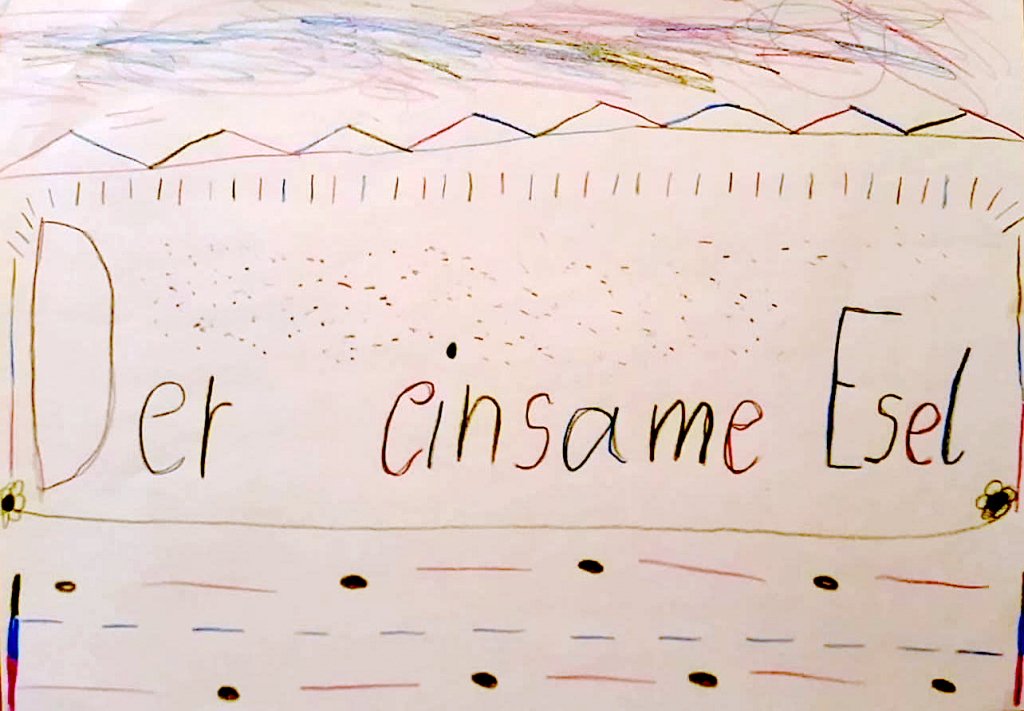 Der einsame Esel